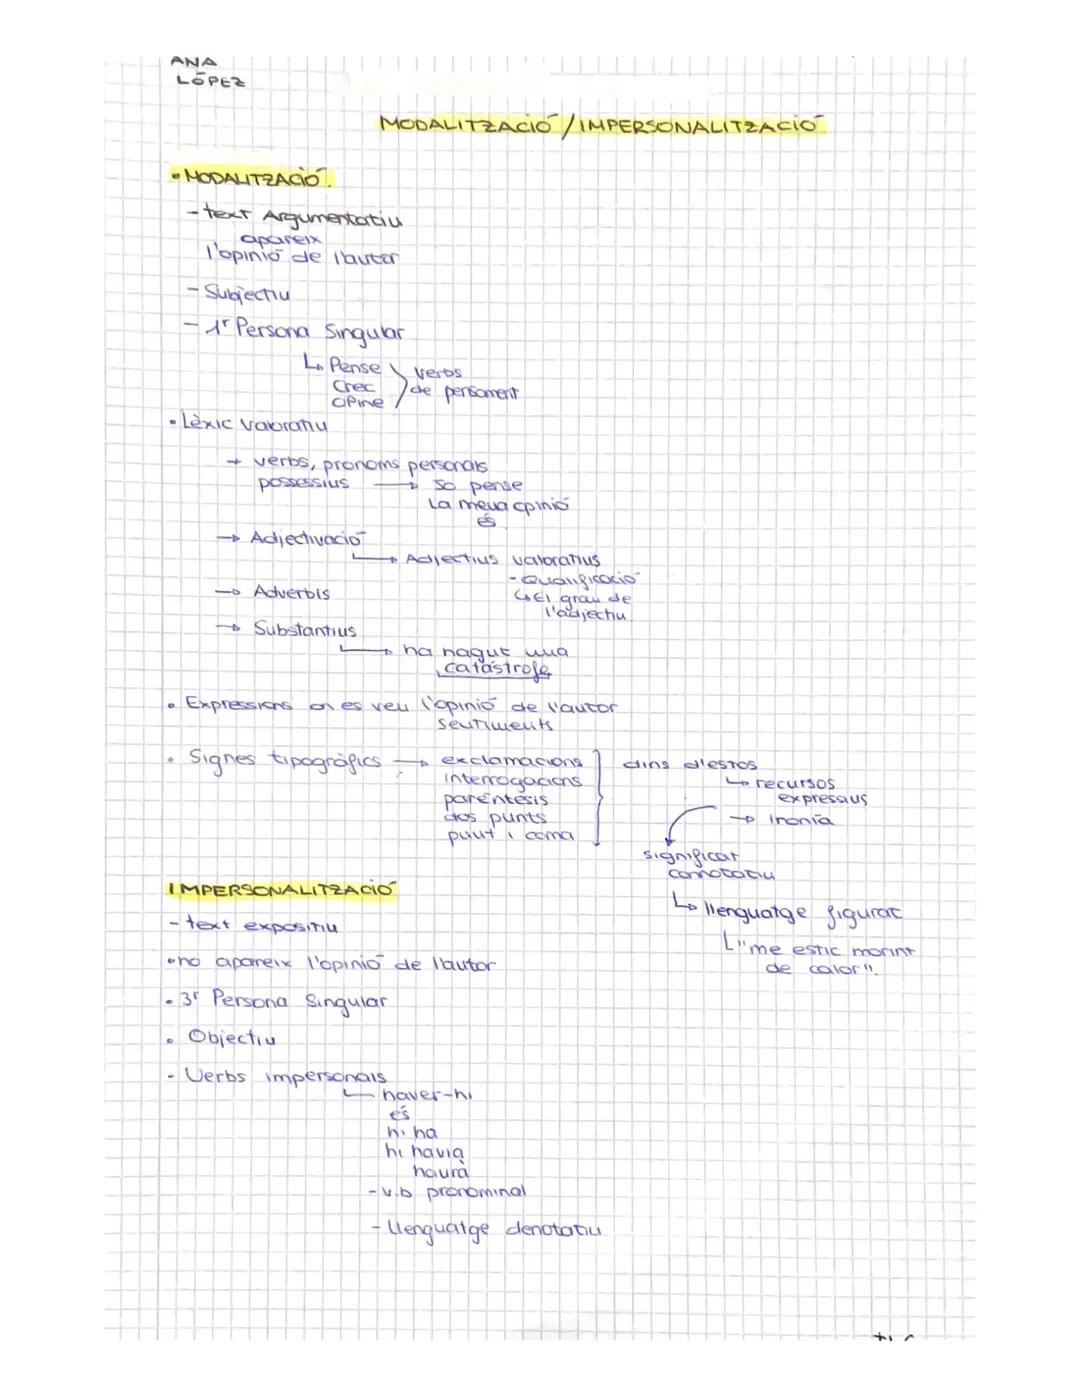 ANA
LÓPEZ
MODALITZACIÓ / IMPERSONALITZACIÓ
• MODALITZACIÓ.
- text Argumentatiu
apareix
l'opinió de l'autor
- Subjectiu
- 1ʳ Persona Singular
↳ Pense
Crec
opine
verbs
de pensament
• Lèxic valoratiu
→ verbs, pronoms personals
possessius → Jo pense
La meua opinió
és
→ Adjectivació
↳ Adjectius valoratius
- Quantificació
↳ El grau de
l'adjectiu
→ Adverbis
→ Substantius
↳ ha hagut una
catástrofe
• Expressions on es veu l'opinió de l'autor
sentiments
• Signes tipogràfics → exclamacions
interrogacions
paréntesis
dos punts
punt i coma
dins d'estos
↳ recursos
expressius
→ Ironía
significat
connotatiu
↳ llenguatge figurat
"me estic morint
de calor".
IMPERSONALITZACIÓ
- text expositiu
• no apareix l'opinió de l'autor
• 3ʳ Persona Singular
• Objectiu
- Verbs impersonals
haver-hi
és
hi ha
hi havia
haurà
- v.b pronominal
- llenguatge denotatiu